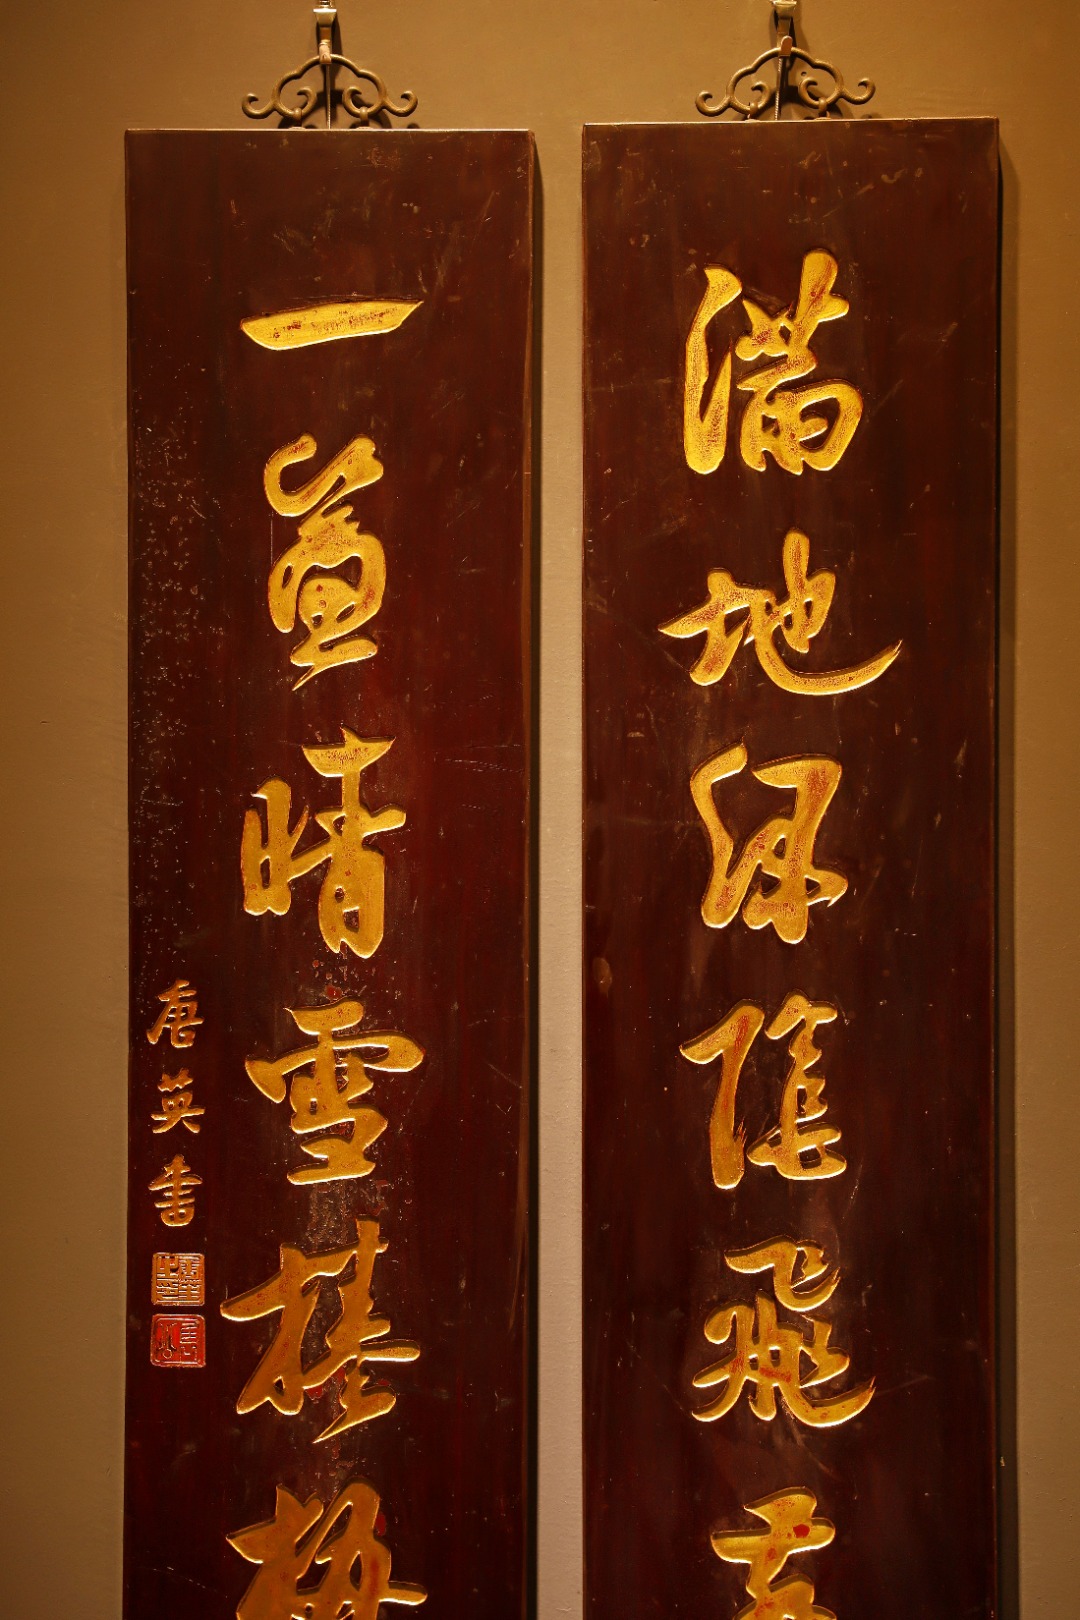 滿地綠陰飛
一簾晴雪捲梅
唐英書